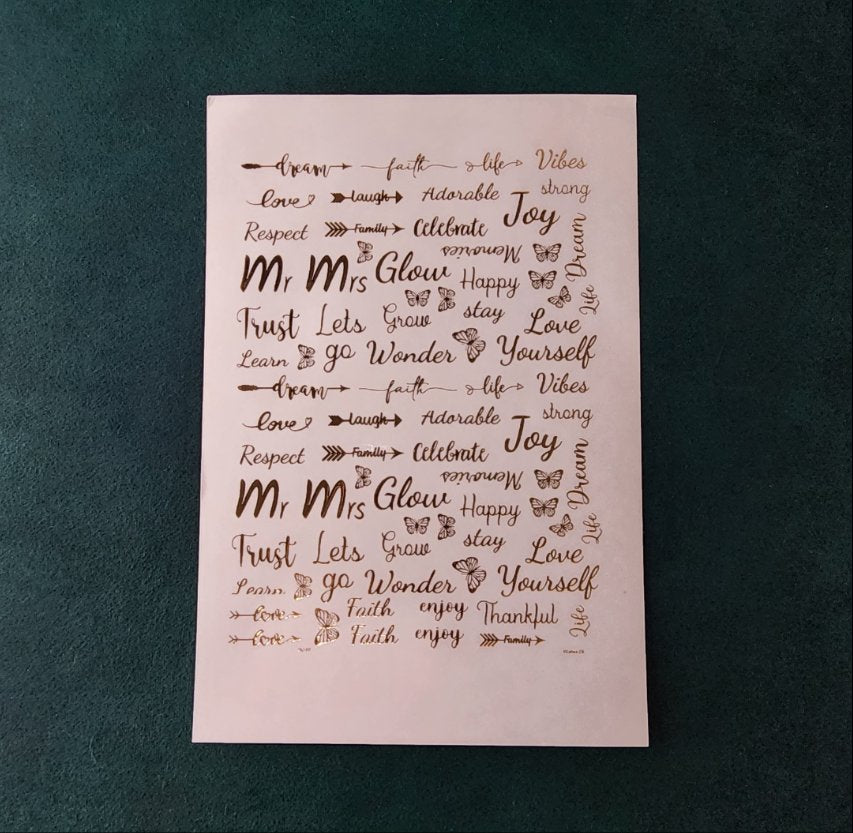 dream faith life Vibes
love laugh Adorable strong
Respect Family Celebrate Joy
Memories Dream
Mr Mrs Glow Happy
Life
Trust Lets Grow stay Love
Learn go Wonder Yourself
dream faith life Vibes
love laugh Adorable strong
Respect Family Celebrate Joy
Memories Dream
Mr Mrs Glow Happy
Life
Trust Lets Grow stay Love
Learn go Wonder Yourself
love Faith enjoy Thankful Life
love Faith enjoy Family